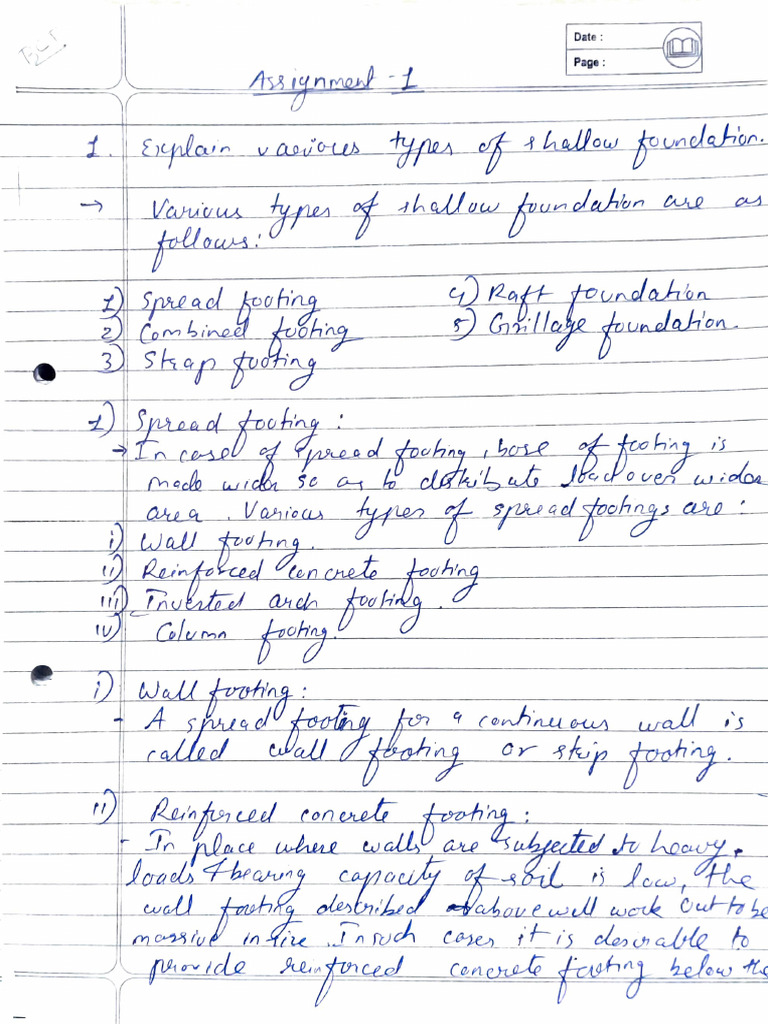 BCT
Date :
Page :
Assignment - 1
1. Explain various types of shallow foundation.
→ Various types of shallow foundation are as
follows:
1) Spread footing
2) Combined footing
3) Strap footing
4) Raft foundation
5) Grillage foundation.
1) Spread footing :
→ In case of spread footing, base of footing is
made wider so as to distribute load over wider
area. Various types of spread footings are :
i) Wall footing.
ii) Reinforced concrete footing
iii) Inverted arch footing.
iv) Column footing.
i) Wall footing :
- A spread footing for a continuous wall is
called wall footing or strip footing.
ii) Reinforced concrete footing :
- In place where walls are subjected to heavy
loads & bearing capacity of soil is low, the
wall footing described above will work out to be
massive in size. In such cases it is desirable to
provide reinforced concrete footing below the